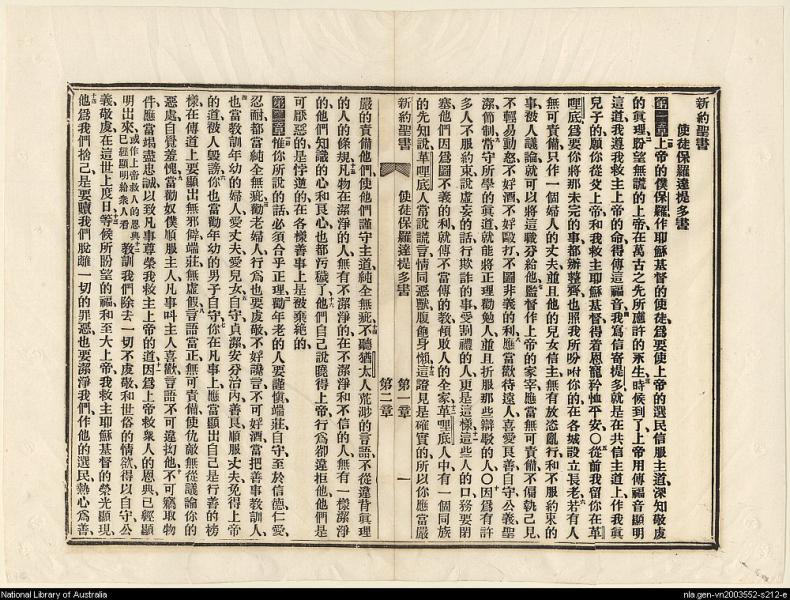 新約聖書
使徒保羅達提多書
第一章 上帝的僕保羅作耶穌基督的使徒、爲要使上帝的選民信服主道、深知敬虔
的眞理、盼望無謊的上帝在萬古之先所應許的永生、時候到了、上帝用傳福音顯明
這道、我遵我救主上帝的命得傳這福音、我寫信寄提多、就是在共信主道上作我眞
兒子的、願你從父上帝和我救主耶穌基督得着恩寵矜恤平安○從前我留你在革
哩底、爲要你將那未完的事都辦整齊、也照我所吩咐你的、在各城設立長老、若有人
無可責備、只作一個婦人的丈夫、並且他的兒女信主、無有放恣亂行、和不服約束的
事被人議論、就可以將這職分給他、監督作上帝的家宰、應當無可責備、不偏執己見、
不輕易動怒、不好酒、不好毆打、不圖非義的利、應當歡待遠人、喜愛良善、自守、公義、聖
潔、節制、當守所學的眞道、就能將正理勸勉人、並且折服那些辯駁的人○因爲有許
多人不服約束、說虛妄的話、行欺詐的事、受割禮的人更是這樣、這些人的口務要閉
塞、他們因爲圖不義的利、就傳不當傳的教、傾敗人的全家、革哩底人中有一個同族
的先知說、革哩底人常說謊言、情同惡獸、腹飽身懶、這證見是確實的、所以你應當嚴
新約聖書 使徒保羅達提多書 第一章 一
第二章
嚴的責備他們、使他們謹守主道、純全無疵、不聽猶太人荒渺的言語、不從違背眞理
的人的條規、凡物在潔淨的人無有不潔淨的、在不潔淨和不信的人無有一樣潔淨
的、他們知識的心和良心、也都污穢了、他們自己說曉得上帝、行爲卻違拒他、他們是
可厭惡的、是悖逆的、在各樣善事上是被棄絶的、
第二章 惟你所說的話、必須合乎正理、勸年老的人要謹愼、端莊、自守、至於信德仁愛
忍耐、都當純全無疵、勸老婦人行爲也要虔敬、不好讒言、不可好酒、當把善事教訓人、
也當教訓年幼的婦人愛丈夫、愛兒女、自守、貞潔、安分治內、善良、順服丈夫、免得上帝
的道被人毀謗、你也當勸年幼的男子自守、你在凡事上應當顯出自己是行善的榜
樣、在傳道上要顯出無邪僻、端莊、無虛假、言語當正、無可責備、使仇敵無從議論你的
惡處、自覺羞愧、當勸奴僕順服主人、凡事叫主人喜歡、言語不可違拗他、不可竊取物
件、應當竭盡忠誠、以致凡事尊榮我救主上帝的道、因爲上帝救衆人的恩典已經顯
明出來、或作上帝救人的恩典已經顯明給衆人看 教訓我們除去一切不虔敬和世俗的情欲、得以自守、公
義、敬虔、在這世上度日、等候所盼望的福、和至大上帝、我救主耶穌基督的榮光顯現、
他爲我們捨己、是要贖我們脫離一切的罪惡、也要潔淨我們、作他的選民、熱心爲善、
National Library of Australia
nla.gen-vn2003552-s212-e